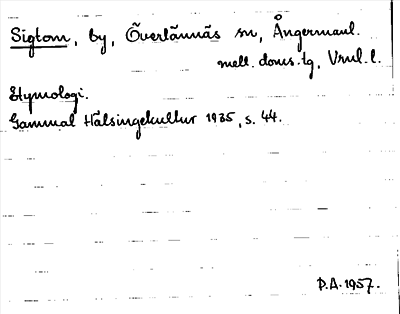 Sigtom, by, Överlännäs sn, Ångermanl.
mell. doms. tg, Vnrl. l.
Etymologi.
Gammal Hälsingekultur 1935, s. 44.
P.A. 1957.